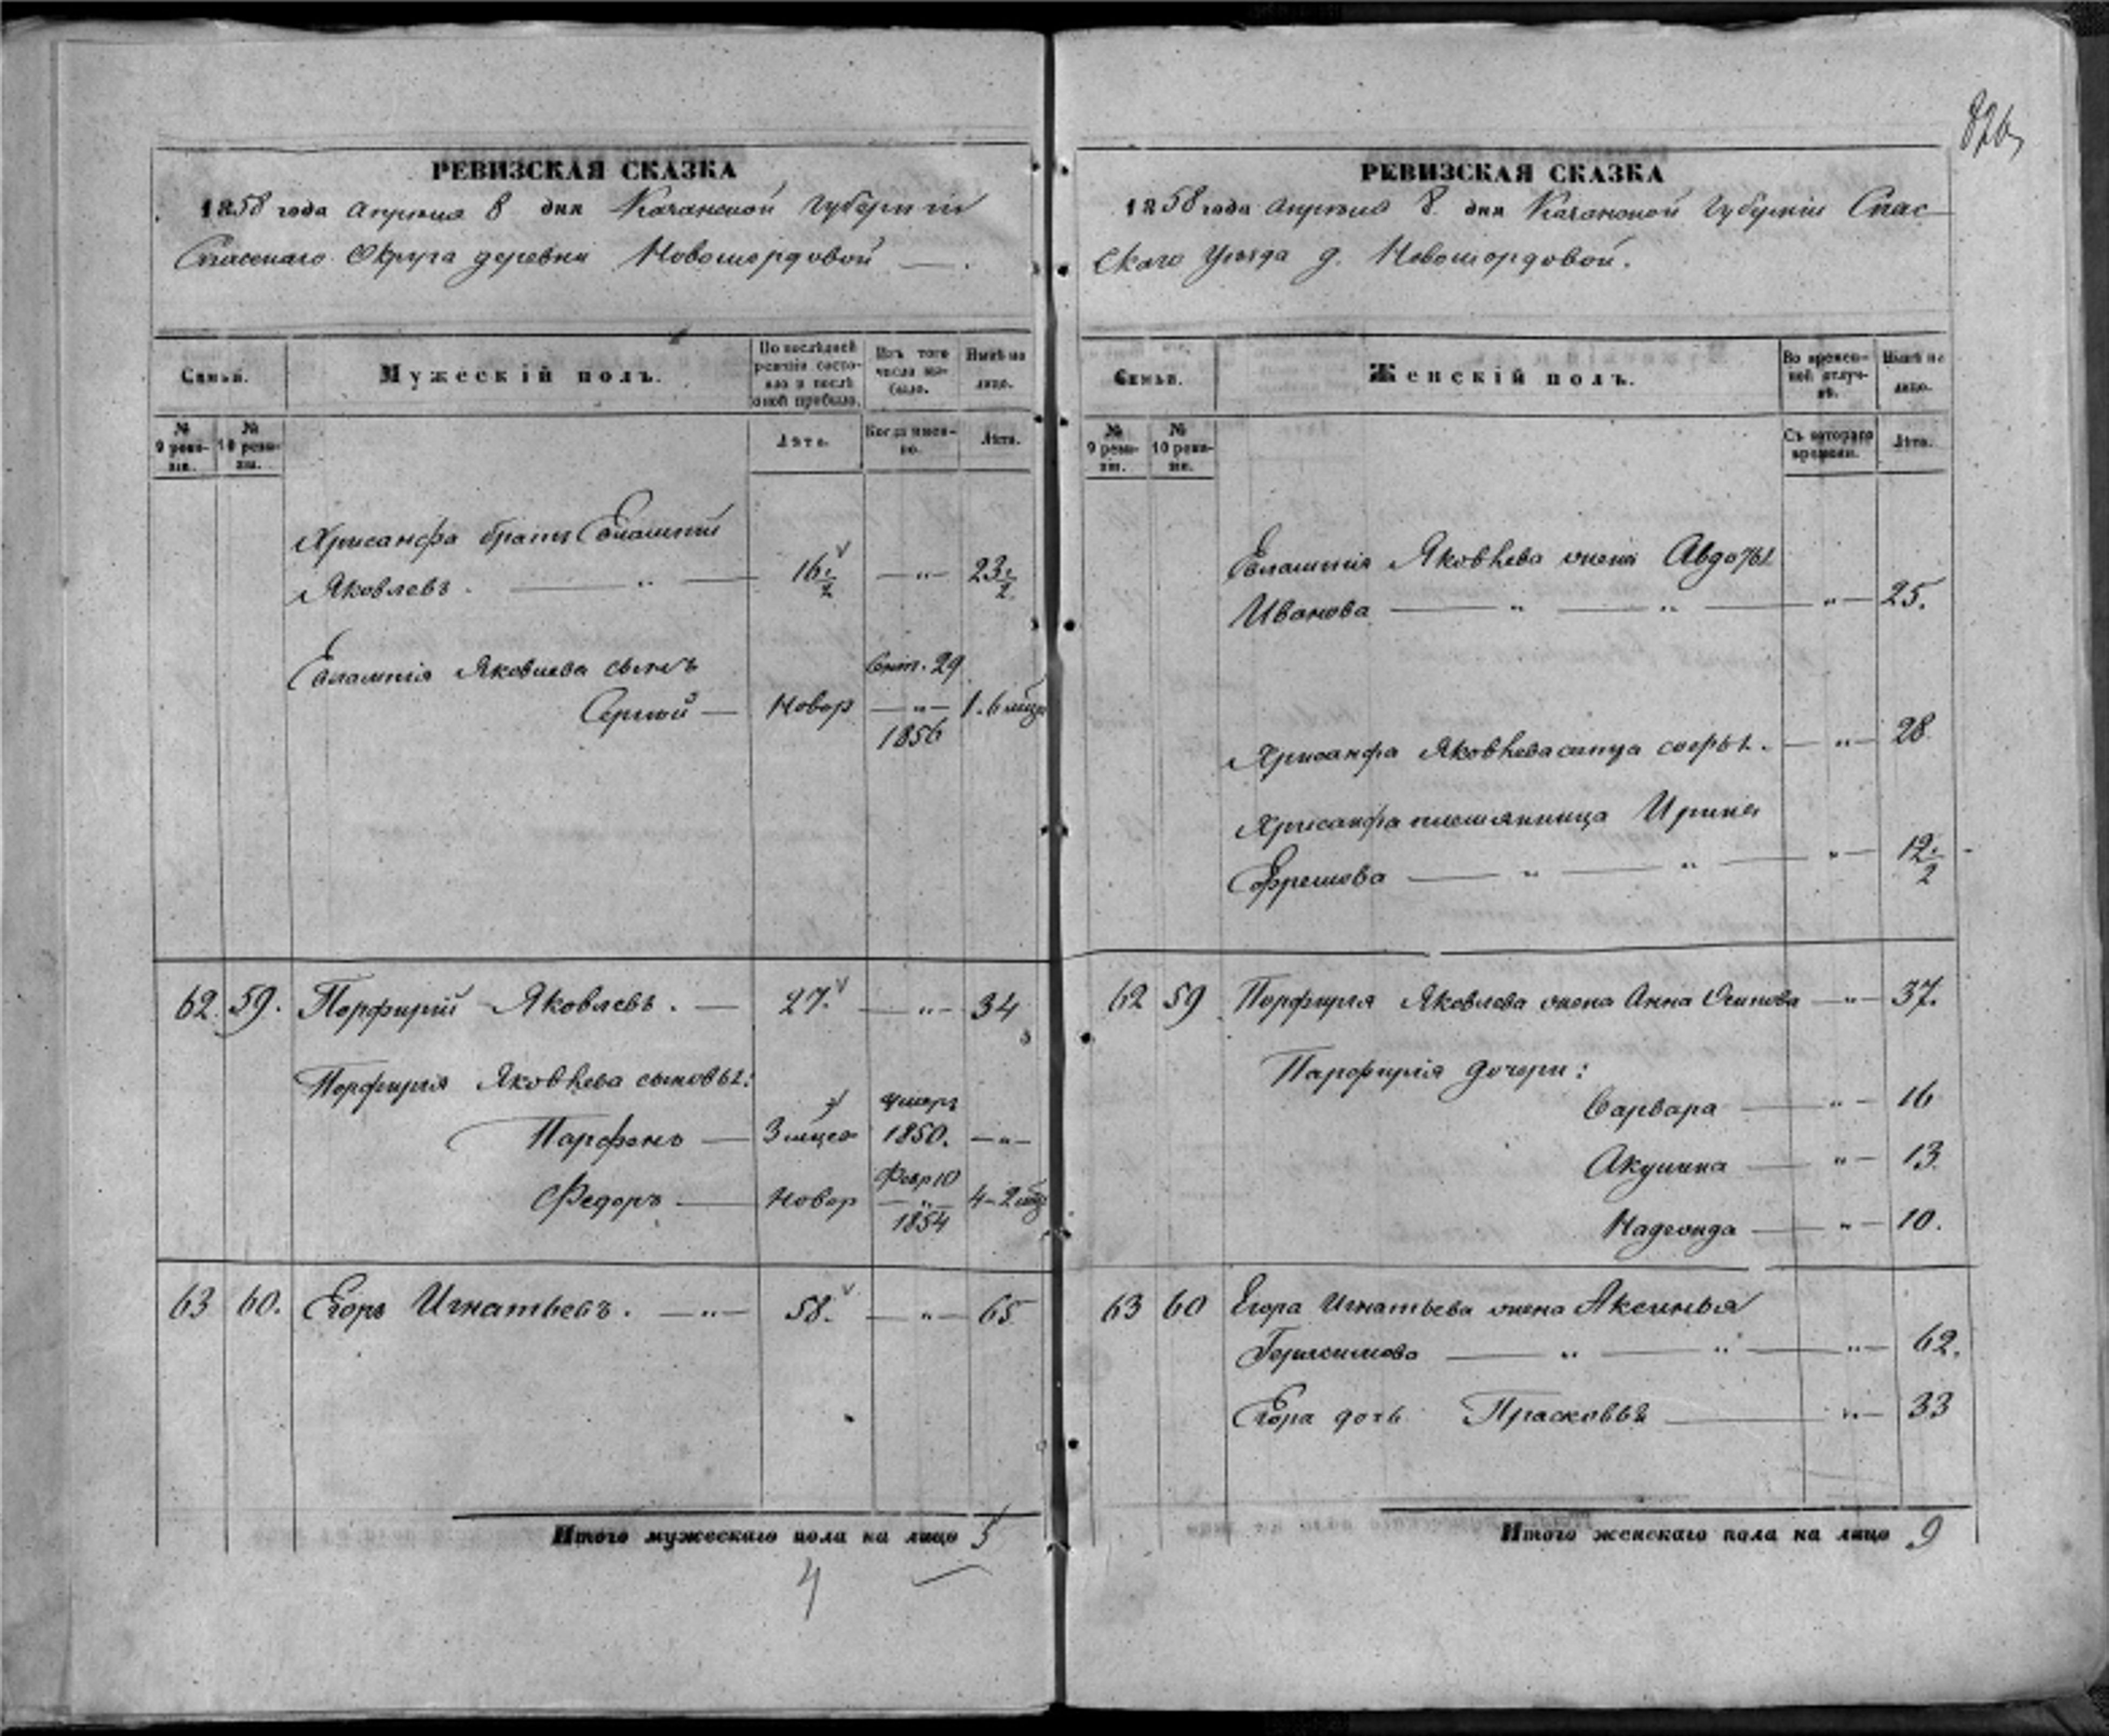 РЕВИЗСКАЯ СКАЗКА
1858 года Апреля 8 дня Казанской Губернии
Спасскаго Округа деревни Новомордовой —.
Семьи.
Мужескій полъ.
По послѣдней ревизіи состояло и послѣ оной прибыло.
Изъ того числа выбыло.
Нынѣ на лицо.
№ 9 ревизіи.
№ 10 ревизіи.
Лѣта.
Когда именно.
Лѣта.
Хрисанфа братъ Евлампій
Яковлевъ. — " — 16 1/2 — " — 23 1/2
Евлампія Яковлева сынъ
Сергѣй — Новор Сент. 29 — " — 1856 1. 6 мѣц
62. 59. Порфирій Яковлевъ. — 27. — " — 34
Порфирія Яковлева сыновья:
Парфенъ — 3 мѣцев умеръ 1850. — " —
Федоръ — Новор Февр 10 — " — 1854 4 - 2 мѣц
63 60. Егоръ Игнатьевъ. — " — 58. — " — 65
Итого мужескаго пола на лицо 5
4
826
РЕВИЗСКАЯ СКАЗКА
1858 года Апреля 8 дня Казанской Губерніи Спас-
скаго Уезда д. Новомордовой.
Семьи.
Женскій полъ.
Во временной отлучкѣ.
Нынѣ на лицо.
№ 9 ревизіи.
№ 10 ревизіи.
Съ котораго времени.
Лѣта.
Евлампія Яковлева жена Авдотья
Иванова — " — " — " — 25.
Хрисанфа Яковлева сестра — " — 28
Хрисанфа племянница Ирина
Ефремова — " — " — " — 12 1/2
62 59 Порфирія Яковлева жена Анна Осипова — " — 37.
Парфирія дочери:
Варвара — " — 16
Акулина — " — 13
Надежда — " — 10.
63 60 Егора Игнатьева жена Аксинья
Герасимова — " — " — " — 62.
Егора дочь Прасковья — " — 33
Итого женскаго пола на лицо 9